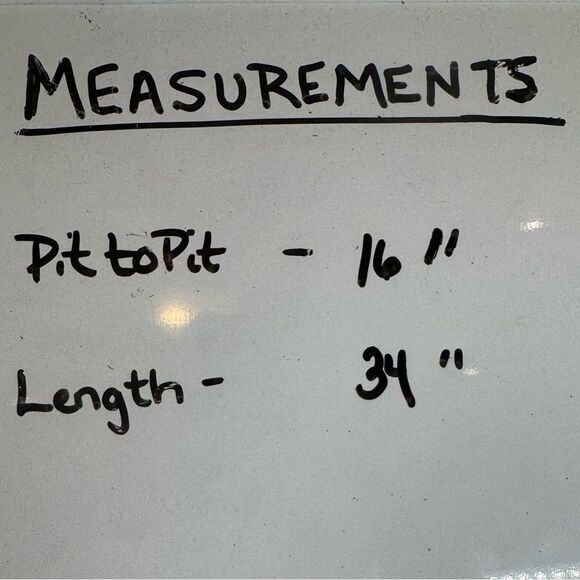 MEASUREMENTS
Pit to Pit - 16"
Length - 34"